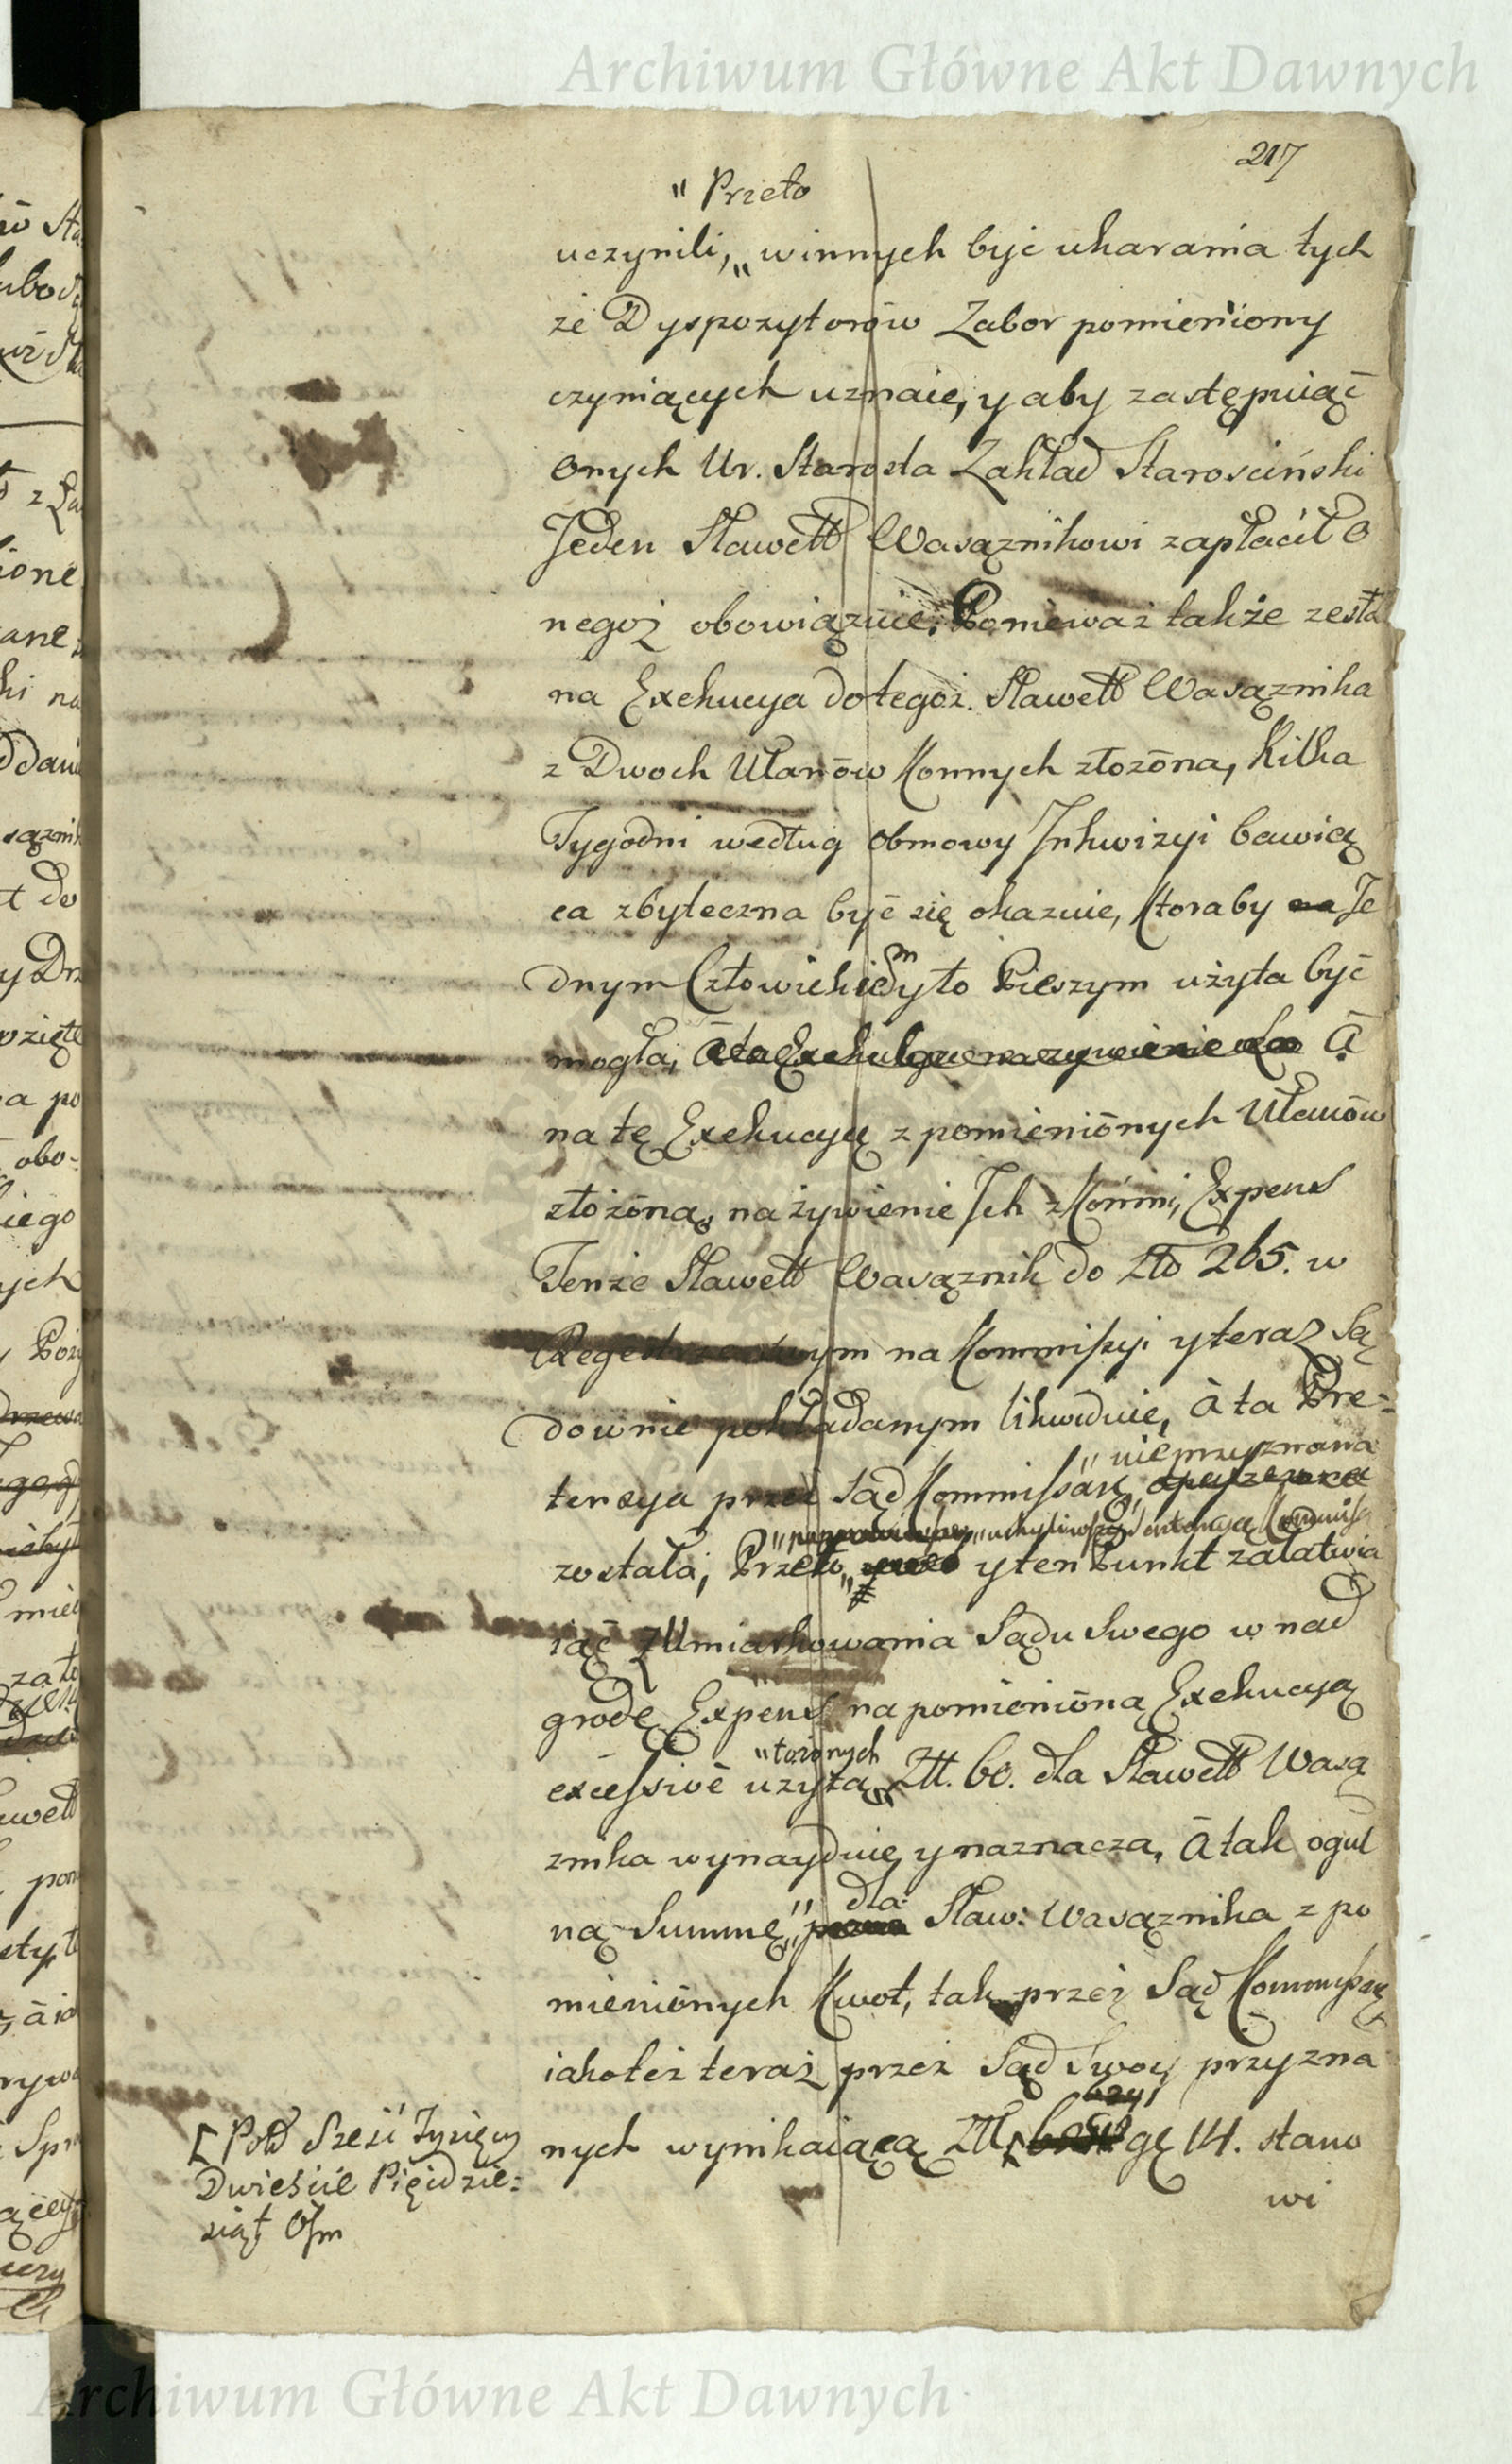 Archiwum Główne Akt Dawnych
217
" Przeto
uczynili, " winnych być ukarania tych
że Dyspozytorów Zabor pomieniony
czyniących uznaie, y aby zastępuiąc
onych Ur. Starosta Zakład Starosciński
Jeden Sławett Wasąznikowi zapłacił O
negoż obowiązuie. Ponieważ także zesła
na Exekucya do tegoż. Sławett Wasąznika
z Dwoch Ułanów Konnych złożona, Kilka
Tygodni według obmowy Inkwizyi bawią
ca zbyteczna być się okazuie, Ktoraby na Je
dnym Człowiekiem y to Pieszym użyta być
mogła, A
na tę Exekucyą z pomienionych Ułanów
złożoną, na żywienie Ich z Końmi, Expens
Tenże Sławett Wasąznik do Złł 265. w
ym na Kommissyi y teraz Są
downie pokładanym likwiduie, A ta Pre=
" nieprzyznana
tensya przez Sąd Kommissar:
" uchyliwszy Sentencyą Kommiss:
została; Przeto " y ten Punkt załatwia
iąc z Umiarkowania Sądu Swego w nad
grodę Expens na pomienioną Exekucyą
" łożonych
excessive użytą " Złł. 60. dla Sławett Wasą
znika wynayduie y naznacza, A tak ogul
" dla
ną Summę " Sław: Wasąznika z po
mienionych Kwot, tak przez Sąd Kommissar:
iako też teraz przez Sąd Swoy przyzna
nych wynikaiącą Złł gr 14. stano
wi
[ Pols Sześć Tysięcy
Dwieście Pięćdzie=
siąt Ośm
Archiwum Główne Akt Dawnych